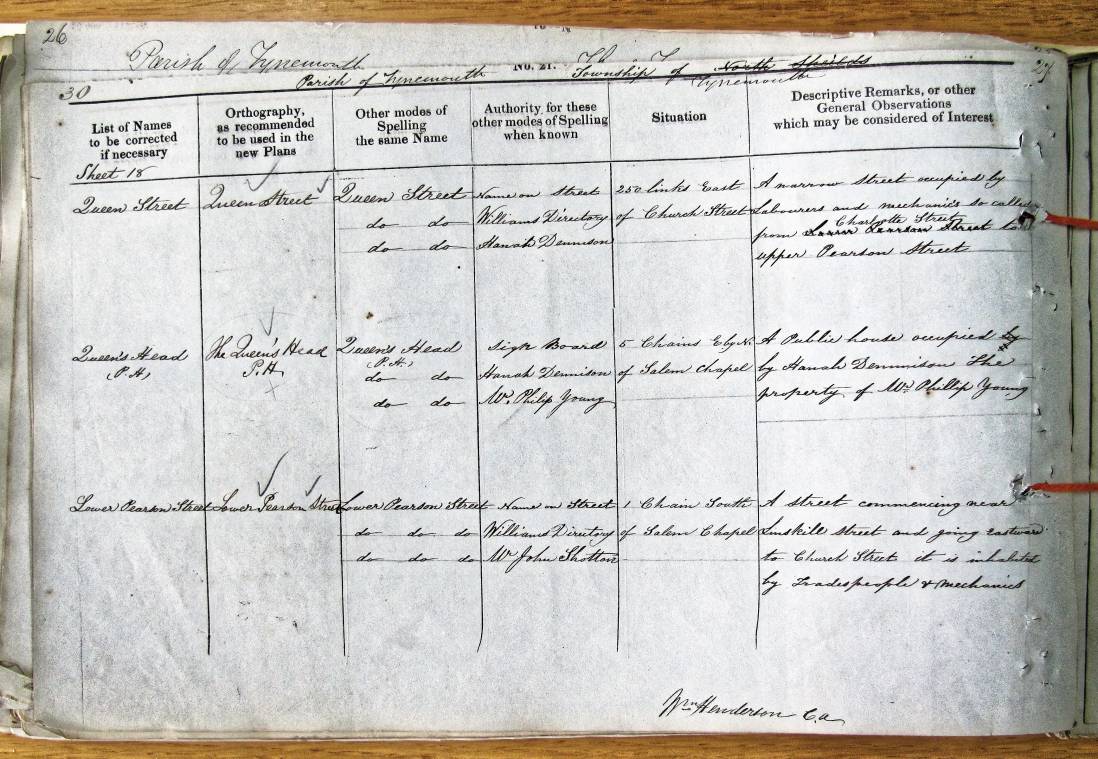 26
Parish of Tynemouth No. 21. Township of North Shields 27
30 Parish of Tynemouth Tynemouth
List of Names
to be corrected
if necessary
Orthography,
as recommended
to be used in the
new Plans
Other modes of
Spelling
the same Name
Authority for these
other modes of Spelling
when known
Situation
Descriptive Remarks, or other
General Observations
which may be considered of Interest
Sheet 18
Queen Street
Queen Street
Queen Street
do do
do do
Name on Street
Williams Directory
Hanah Dennison
250 links East
of Church Street
A narrow street occupied by
Labourers and mechanics so called
Charlotte Street
from Pearson Street to
upper Pearson Street
Queen's Head
(P.H)
The Queen's Head
P.H.
Queen's Head
(P.H.)
do do
do do
Sign Board
Hanah Dennison
Mr. Philip Young
5 Chains E by N.
of Salem Chapel
A Public house occupied by
by Hanah Dennnison The
property of Mr. Phillip Young
Lower Pearson Street
Lower Pearson Street
Lower Pearson Street
do do do
do do do
Name on Street
Williams Directory
Mr John Shotton
1 Chain South
of Salem Chapel
A street commencing near
Linskill Street and going eastward
to Church Street it is inhabited
by Tradespeople & mechanics
Wm Henderson C.a